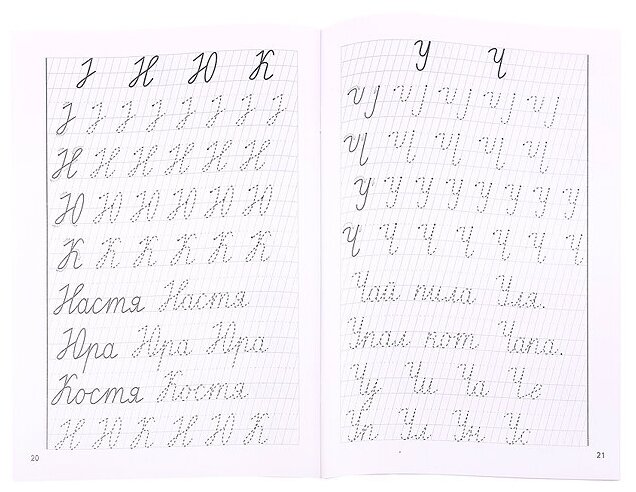 Н Ю К
Н Н Н Н Н Н
Ю Ю Ю Ю Ю Ю
К К К К К К
Настя Настя
Юра Юра Юра
Костя Костя
Н Ю К Н Ю К
20
У Ч
У У У У У У У У
Ч Ч Ч Ч Ч Ч Ч
Чай пила Уля.
Упал кот Чапа.
Чу Чи Ча Че
Уп Ул Ун Ус
21